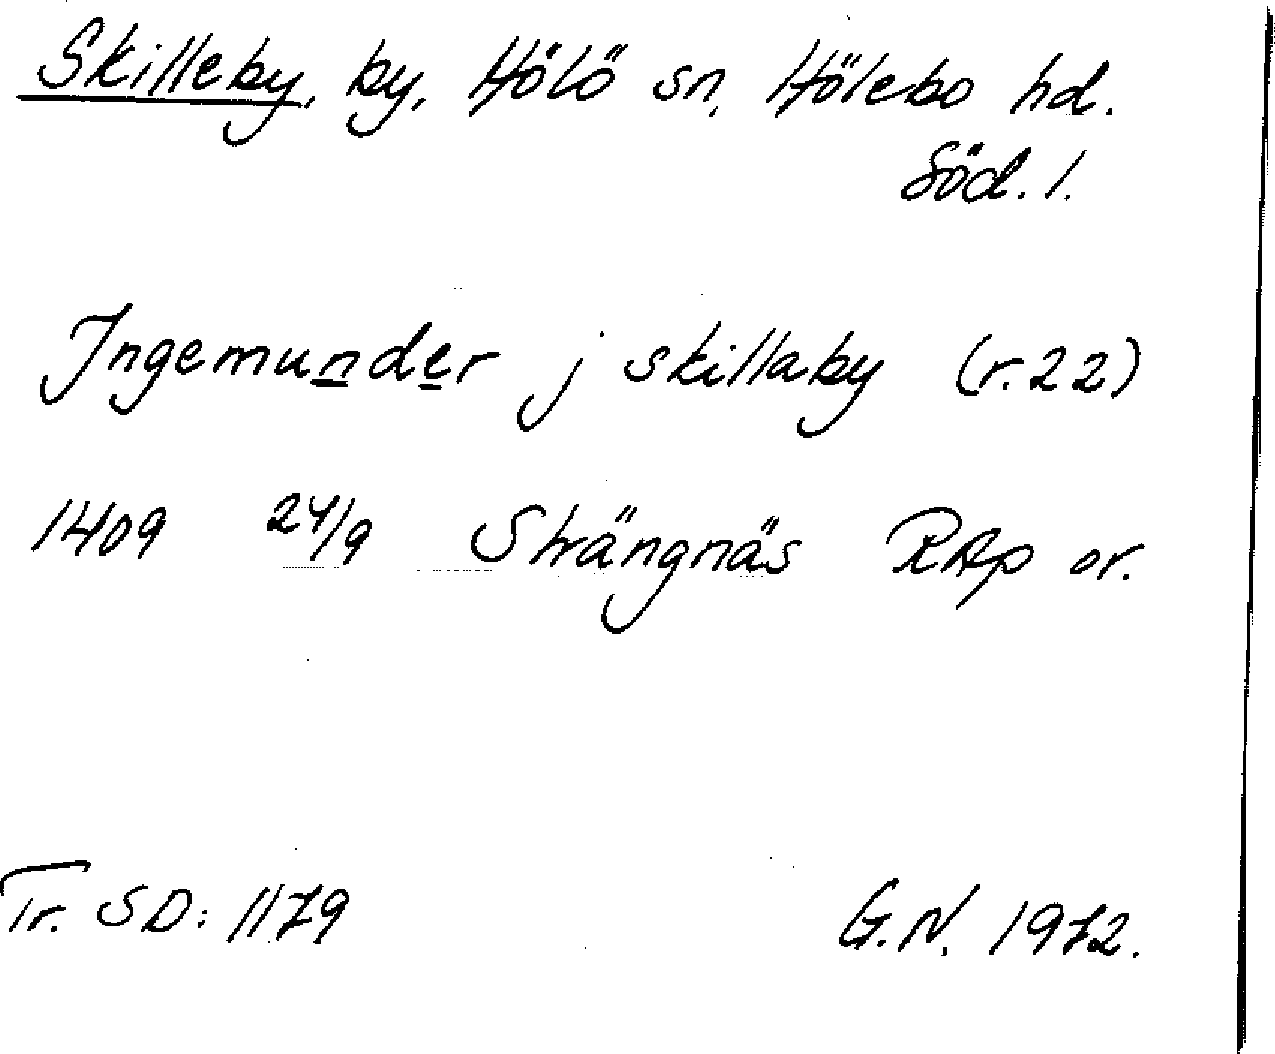 Skilleby, by, Hölö sn, Hölebo hd.
Söd. l.
Ingemunder j skillaby (r. 22)
1409 24/9 Strängnäs RAp or.
Tr. SD: 1179 G.N. 1972.